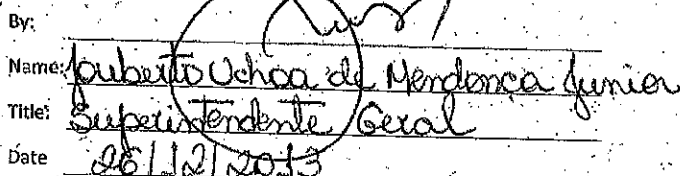 By:
Name: Jouberto Uchoa de Mendonça Junior
Title: Superintendente Geral
Date 26/12/2013